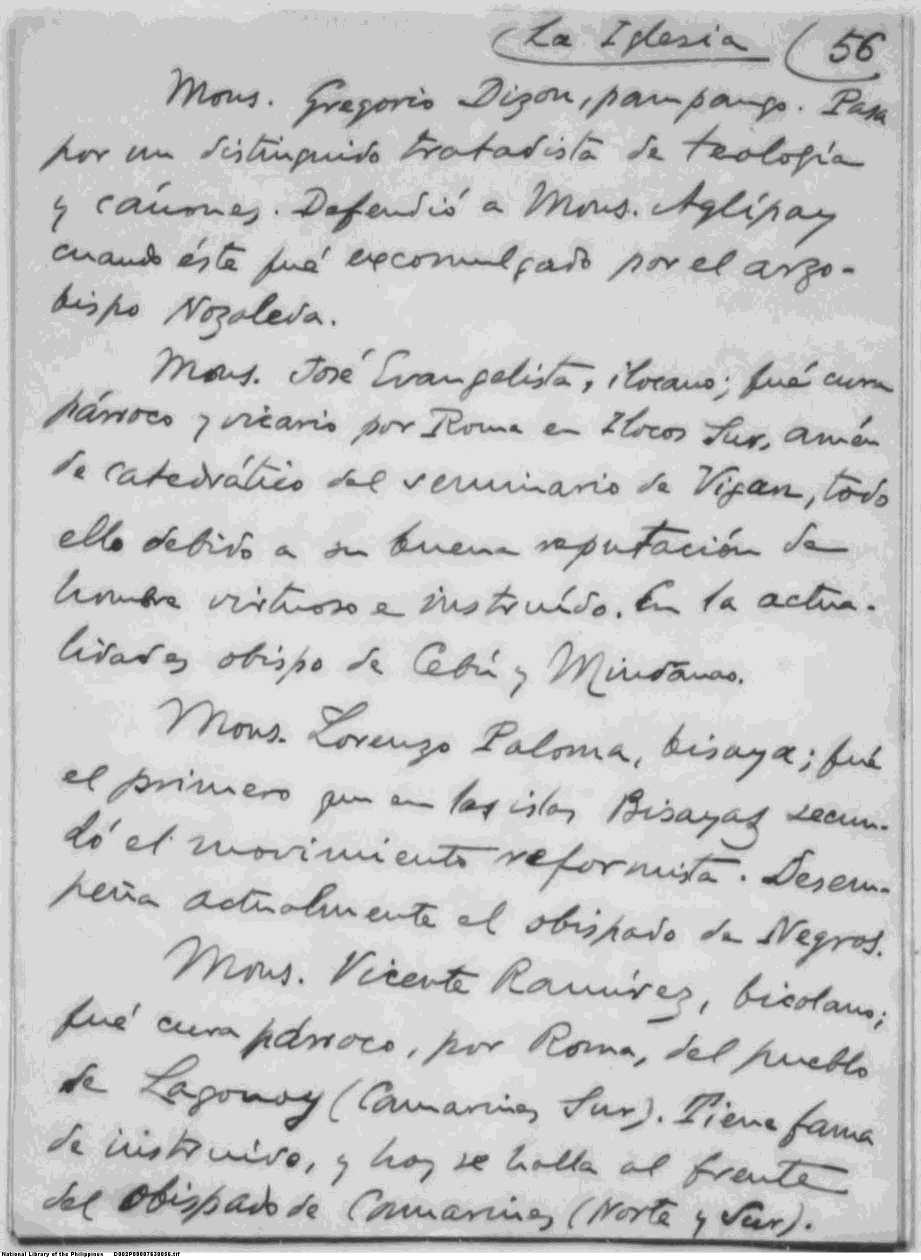 La Iglesia 56
Mons. Gregorio Dizon, pampango. Pasa
por un distinguido tratadista de teología
y cánones. Defendió a Mons. Aglípay
cuando éste fué excomulgado por el arzo-
bispo Nozaleda.
Mons. José Evangelista, ilocano; fué cura
párroco y vicario por Roma en Ilocos Sur, amén
de catedrático del seminario de Vigan, todo
ello debido a su buena reputación de
hombre virtuoso e instruído. En la actua-
lidad es obispo de Cebú y Mindanao.
Mons. Lorenzo Paloma, bisaya; fué
el primero que en las islas Bisayas secun-
dó el movimiento reformista. Desem-
peña actualmente el obispado de Negros.
Mons. Vicente Ramírez, bicolano;
fué cura párroco, por Roma, del pueblo
de Lagonoy (Camarines Sur). Tiene fama
de instruido, y hoy se halla al frente
del obispado de Camarines (Norte y Sur).
National Library of the Philippines D002P00007630056.tif